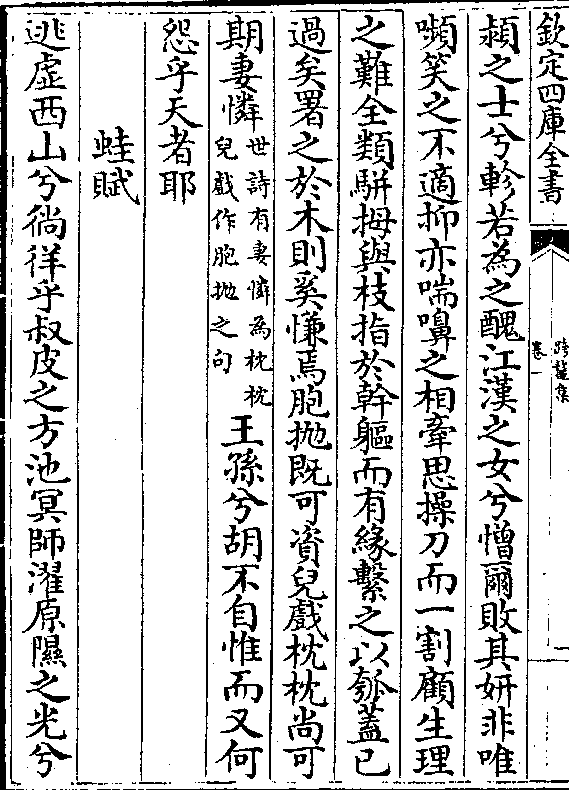 欽定四庫全書
卷一
潁之士兮軫若為之醜江漢之女兮憎爾敗其妍非唯
嚬笑之不適抑亦喘嚊之相牽思操刀而一割顧生理
之難全類駢拇與枝指於幹軀而有緣繫之以瓠蓋已
過矣署之於木則奚慊焉胞抛既可資兒戲枕枕尚可
期妻憐世詩有妻憐為枕枕
兒戲作胞抛之句王孫兮胡不自惟而又何
怨乎天者耶
蛙賦
逃虛西山兮徜徉乎叔皮之方池冥師濯原隰之光兮